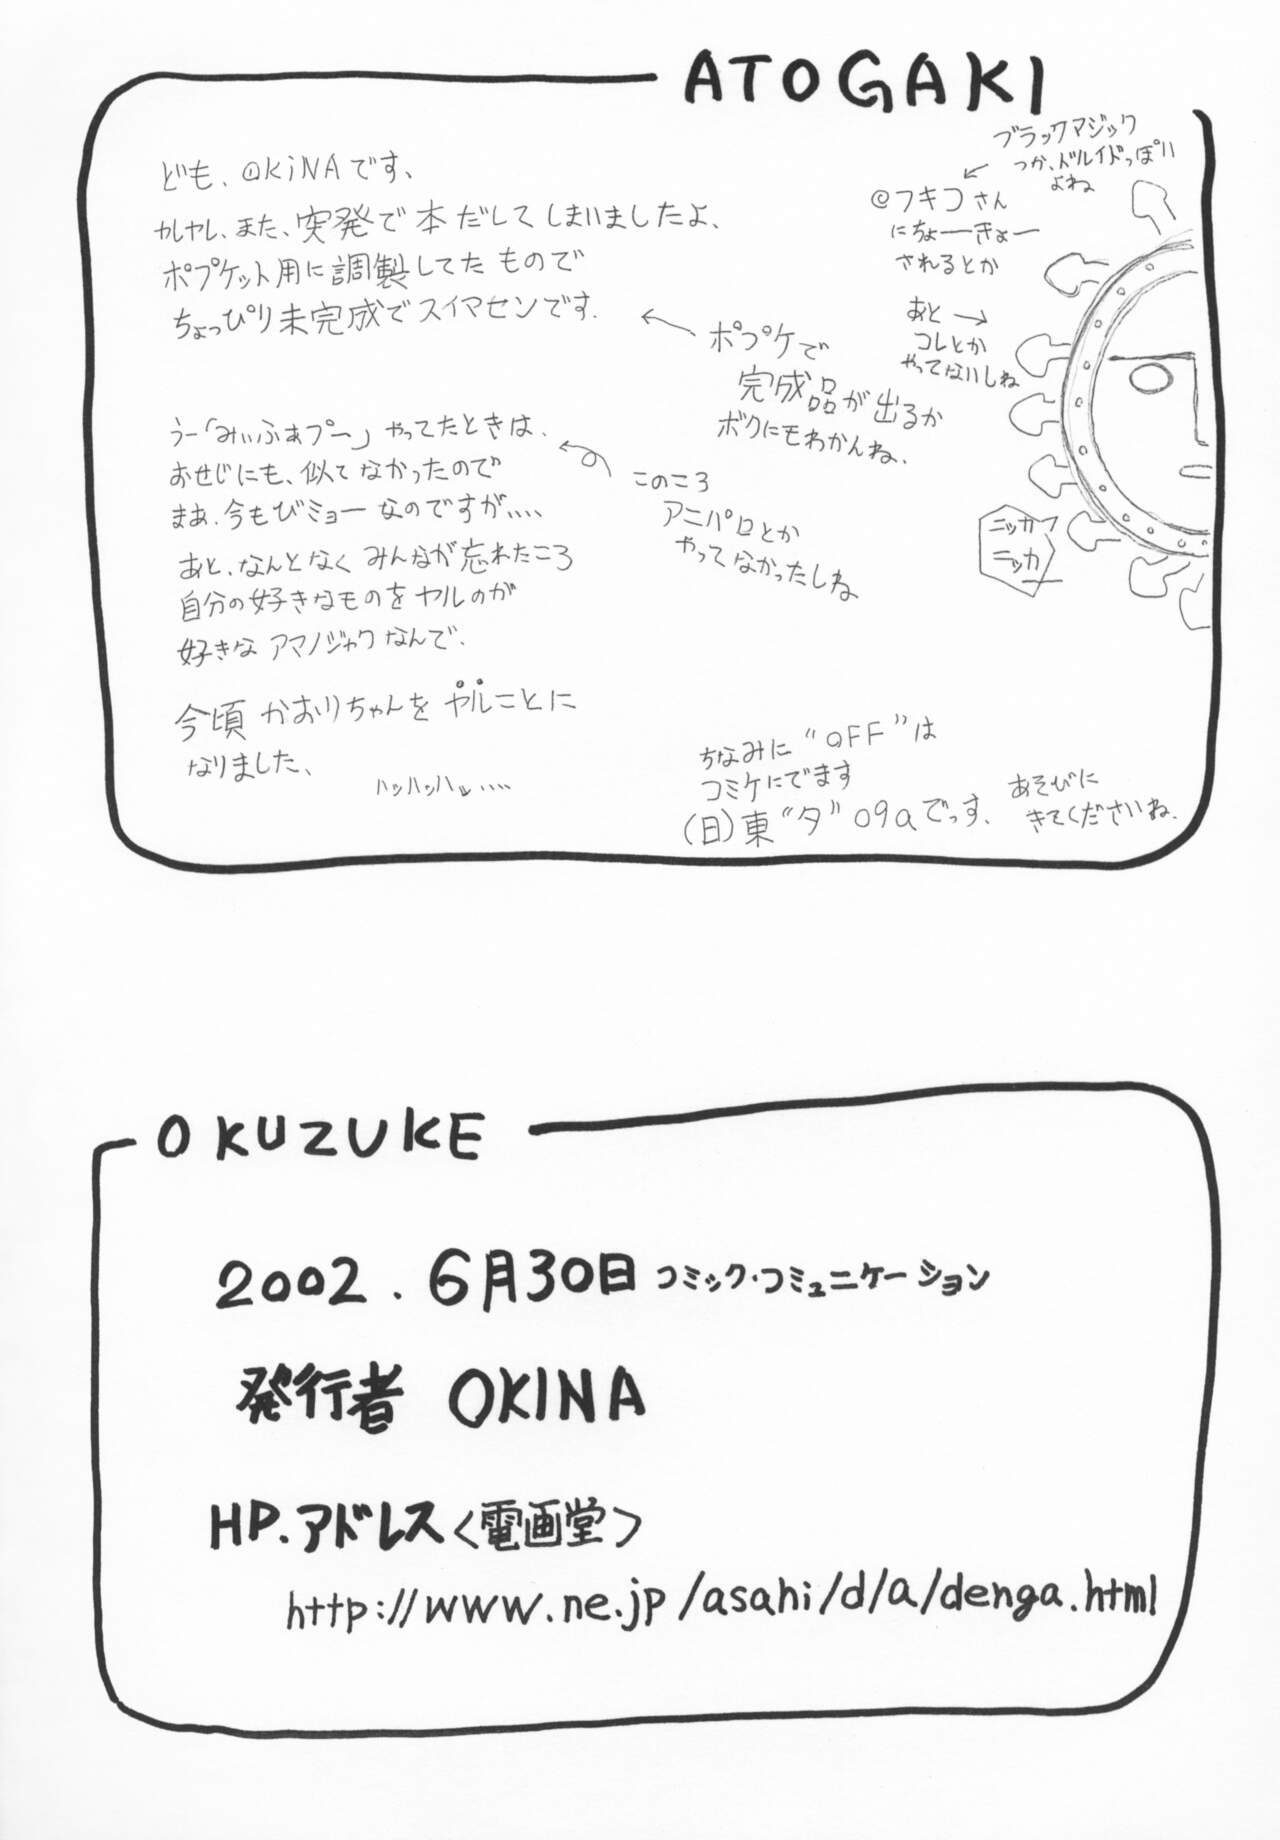 ATOGAKI
ども、OKiNAです、
ヤレヤレ、また、突発で本だしてしまいましたよ、
ポプケット用に調製してたもので
ちょっぴり未完成でスイマセンです.
ポプケで
完成品が出るか
ボクにもわかんね、
ブラックマジック
つか、ドルイドっぽい
よね
@フキコさん
にちょーきょー
されるとか
あと
コレとか
やってないしね
ニッカ
ニッカ
うー「みぃふぁプー」やってたときは、
おせじにも、似てなかったので
まあ、今もびミョーなのですが、、、、
このころ
アニパロとか
やってなかったしね
あと、なんとなくみんなが忘れたころ
自分の好きなものをヤルのが
好きなアマノジャクなんで、
今頃かおりちゃんをヤルことに
なりました、
ハッハッハッ、、、、
ちなみに"OFF"は
コミケにでます
(日)東"タ"09aでっす、
あそびに
きてくださいね.
OKUZUKE
2002.6月30日 コミック・コミュニケーション
発行者 OKINA
HP.アドレス<電画堂>
http://www.ne.jp/asahi/d/a/denga.html